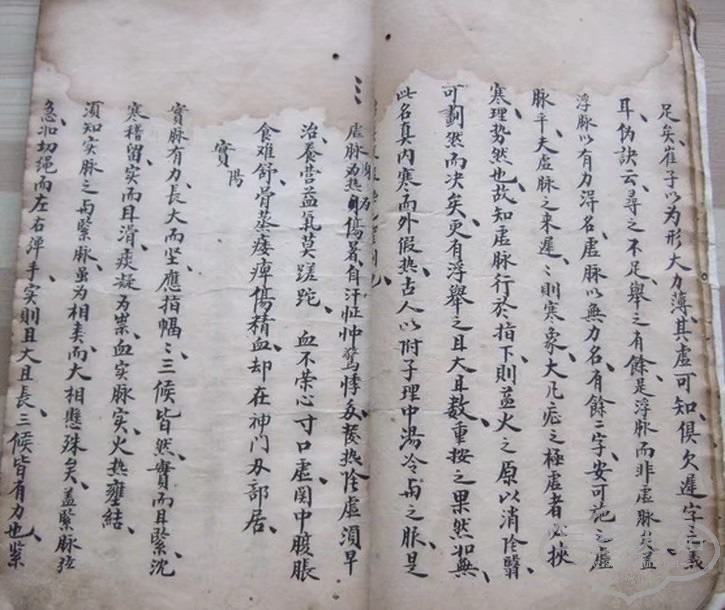 足矣崔子以为形大力薄其虚可知俱欠遲字之義
耳伪訣云尋之不足舉之有餘是浮脉而非虚脉矣盖
浮脉以有力淂名虚脉以無力名有餘二字安可施之虚
脉乎夫虚脉之来遲〻則寒象大凡症之極虚者必挾
寒理势然也故知虚脉行於指下則益火之原以消陰翳
可劃然而决矣更有浮舉之且大且数重按之果然如無
此名真内寒而外假热古人以附子理中湯冷而之脹是
虚脉為热傷暑自汗怔忡驚悸多發热陰虚湏早
治養营益氣莫蹉跎 血不荣心寸口虚関中腹脹
食难舒骨蒸痿痺傷精血却在神门两部居
實 陽
實脉有力長大而坚應指愊〻三候皆然實而且緊沉
寒稽留實而且滑痰凝为祟血实脉实火热壅結
湏知实脉之与緊脉虽为相类而大相懸殊矣盖緊脉弦
急如切绳而左右弹手实則且大且長三候皆有力也紧